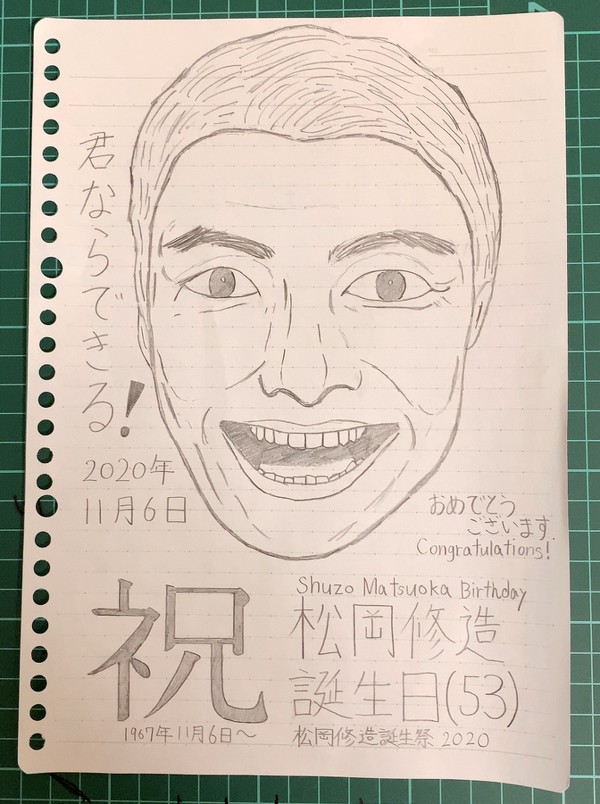 君ならできる!
2020年
11月6日
おめでとう
ございます
Congratulations!
Shuzo Matsuoka Birthday
祝
松岡修造
誕生日(53)
1967年11月6日〜
松岡修造誕生祭 2020